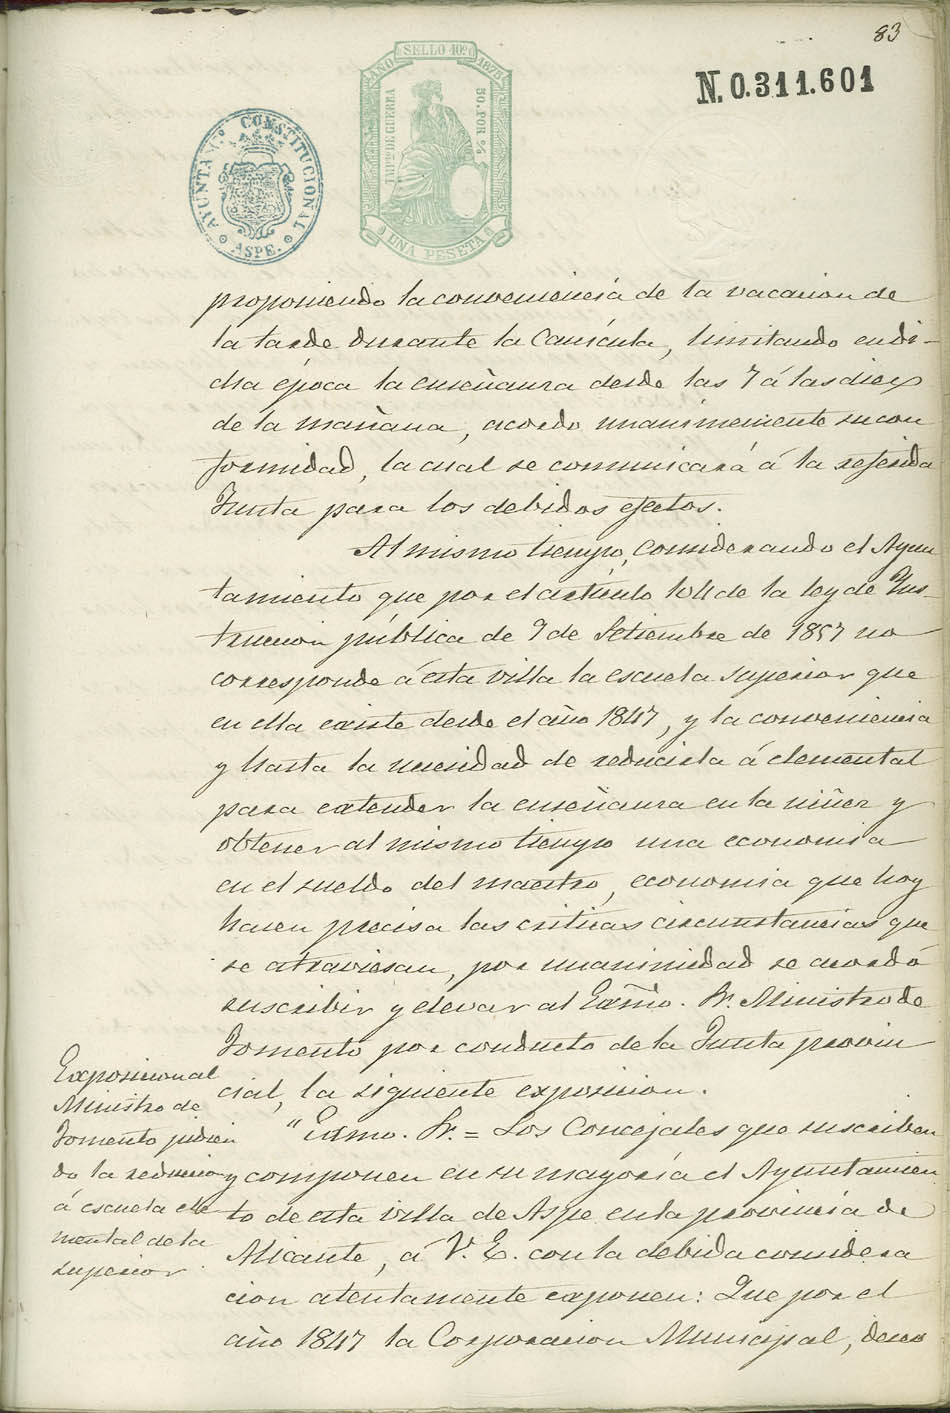 83
N. 0.311.601
SELLO 10.º
AÑO 1875
IMP.to DE GUERRA
50. POR %
UNA PESETA
AYUNTAM.º CONSTITUCIONAL
ASPE.
proponiendo la conveniencia de la vacacion de
la tarde durante la Canícula, limitando en di-
cha época la enseñanza desde las 7 á las diez
de la mañana, acordo unanimemente su con
formidad, la cual se comunicará á la referida
Junta para los debidos efectos.
Al mismo tiempo, considerando el Ayun
tamiento que por el artículo 104 de la ley de Ins-
truccion pública de 9 de Setiembre de 1857 no
corresponde á esta villa la escuela superior que
en ella existe desde el año 1847, y la conveniencia
y hasta la necesidad de reducirla á elemental
para extender la enseñanza en la niñez y
obtener al mismo tiempo una economia
en el sueldo del maestro, economia que hoy
hacen precisa las criticas circunstancias que
se atraviesan, por unanimidad se acordó
suscribir y elevar al Exmo. Sr. Ministro de
Fomento por conducto de la Junta provin
cial, la siguiente exposicion.
Exposicion al
Ministro de
Fomento pidien
do la reduccion
á escuela ele
mental de la
superior
"Exmo. Sr. = Los Concejales que suscriben
y componen en su mayoría el Ayuntamien
to de esta villa de Aspe en la provincia de
Alicante, á V. E. con la debida considera
cion atentamente exponen: Que por el
año 1847 la Corporacion Municipal, deseo